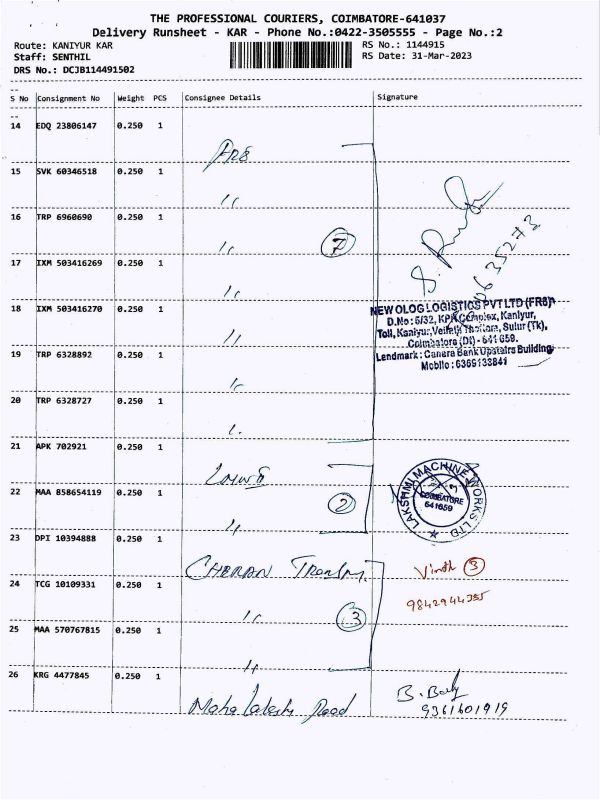 THE PROFESSIONAL COURIERS, COIMBATORE-641037
Delivery Runsheet - KAR - Phone No.:0422-3505555 - Page No.:2
Route: KANIYUR KAR
RS No.: 1144915
Staff: SENTHIL
RS Date: 31-Mar-2023
DRS No.: DCJB114491502
S No Consignment No Weight PCS Consignee Details Signature
14 EDQ 23806147 0.250 1
15 SVK 60346518 0.250 1
16 TRP 6960690 0.250 1
7
17 IXM 503416269 0.250 1
18 IXM 503416270 0.250 1
NEW OLOG LOGISTICS PVT LTD (FR8)
D.No: 5/32, KPK Complex, Kaniyur,
Toll, Kaniyur, Sulur (Tk),
Coimbatore (Dt) - 641 659.
Landmark : Canara Bank Upstairs Building
Mobile : 6369133841
19 TRP 6328892 0.250 1
20 TRP 6328727 0.250 1
21 APK 702921 0.250 1
LAKSHMI MACHINE WORKS LTD
COIMBATORE
641659
22 MAA 858654119 0.250 1
2
23 DPI 10394888 0.250 1
CHERAN
3
24 TCG 10109331 0.250 1
3
25 MAA 570767815 0.250 1
26 KRG 4477845 0.250 1
9361601919
Maha Lakshmi Road